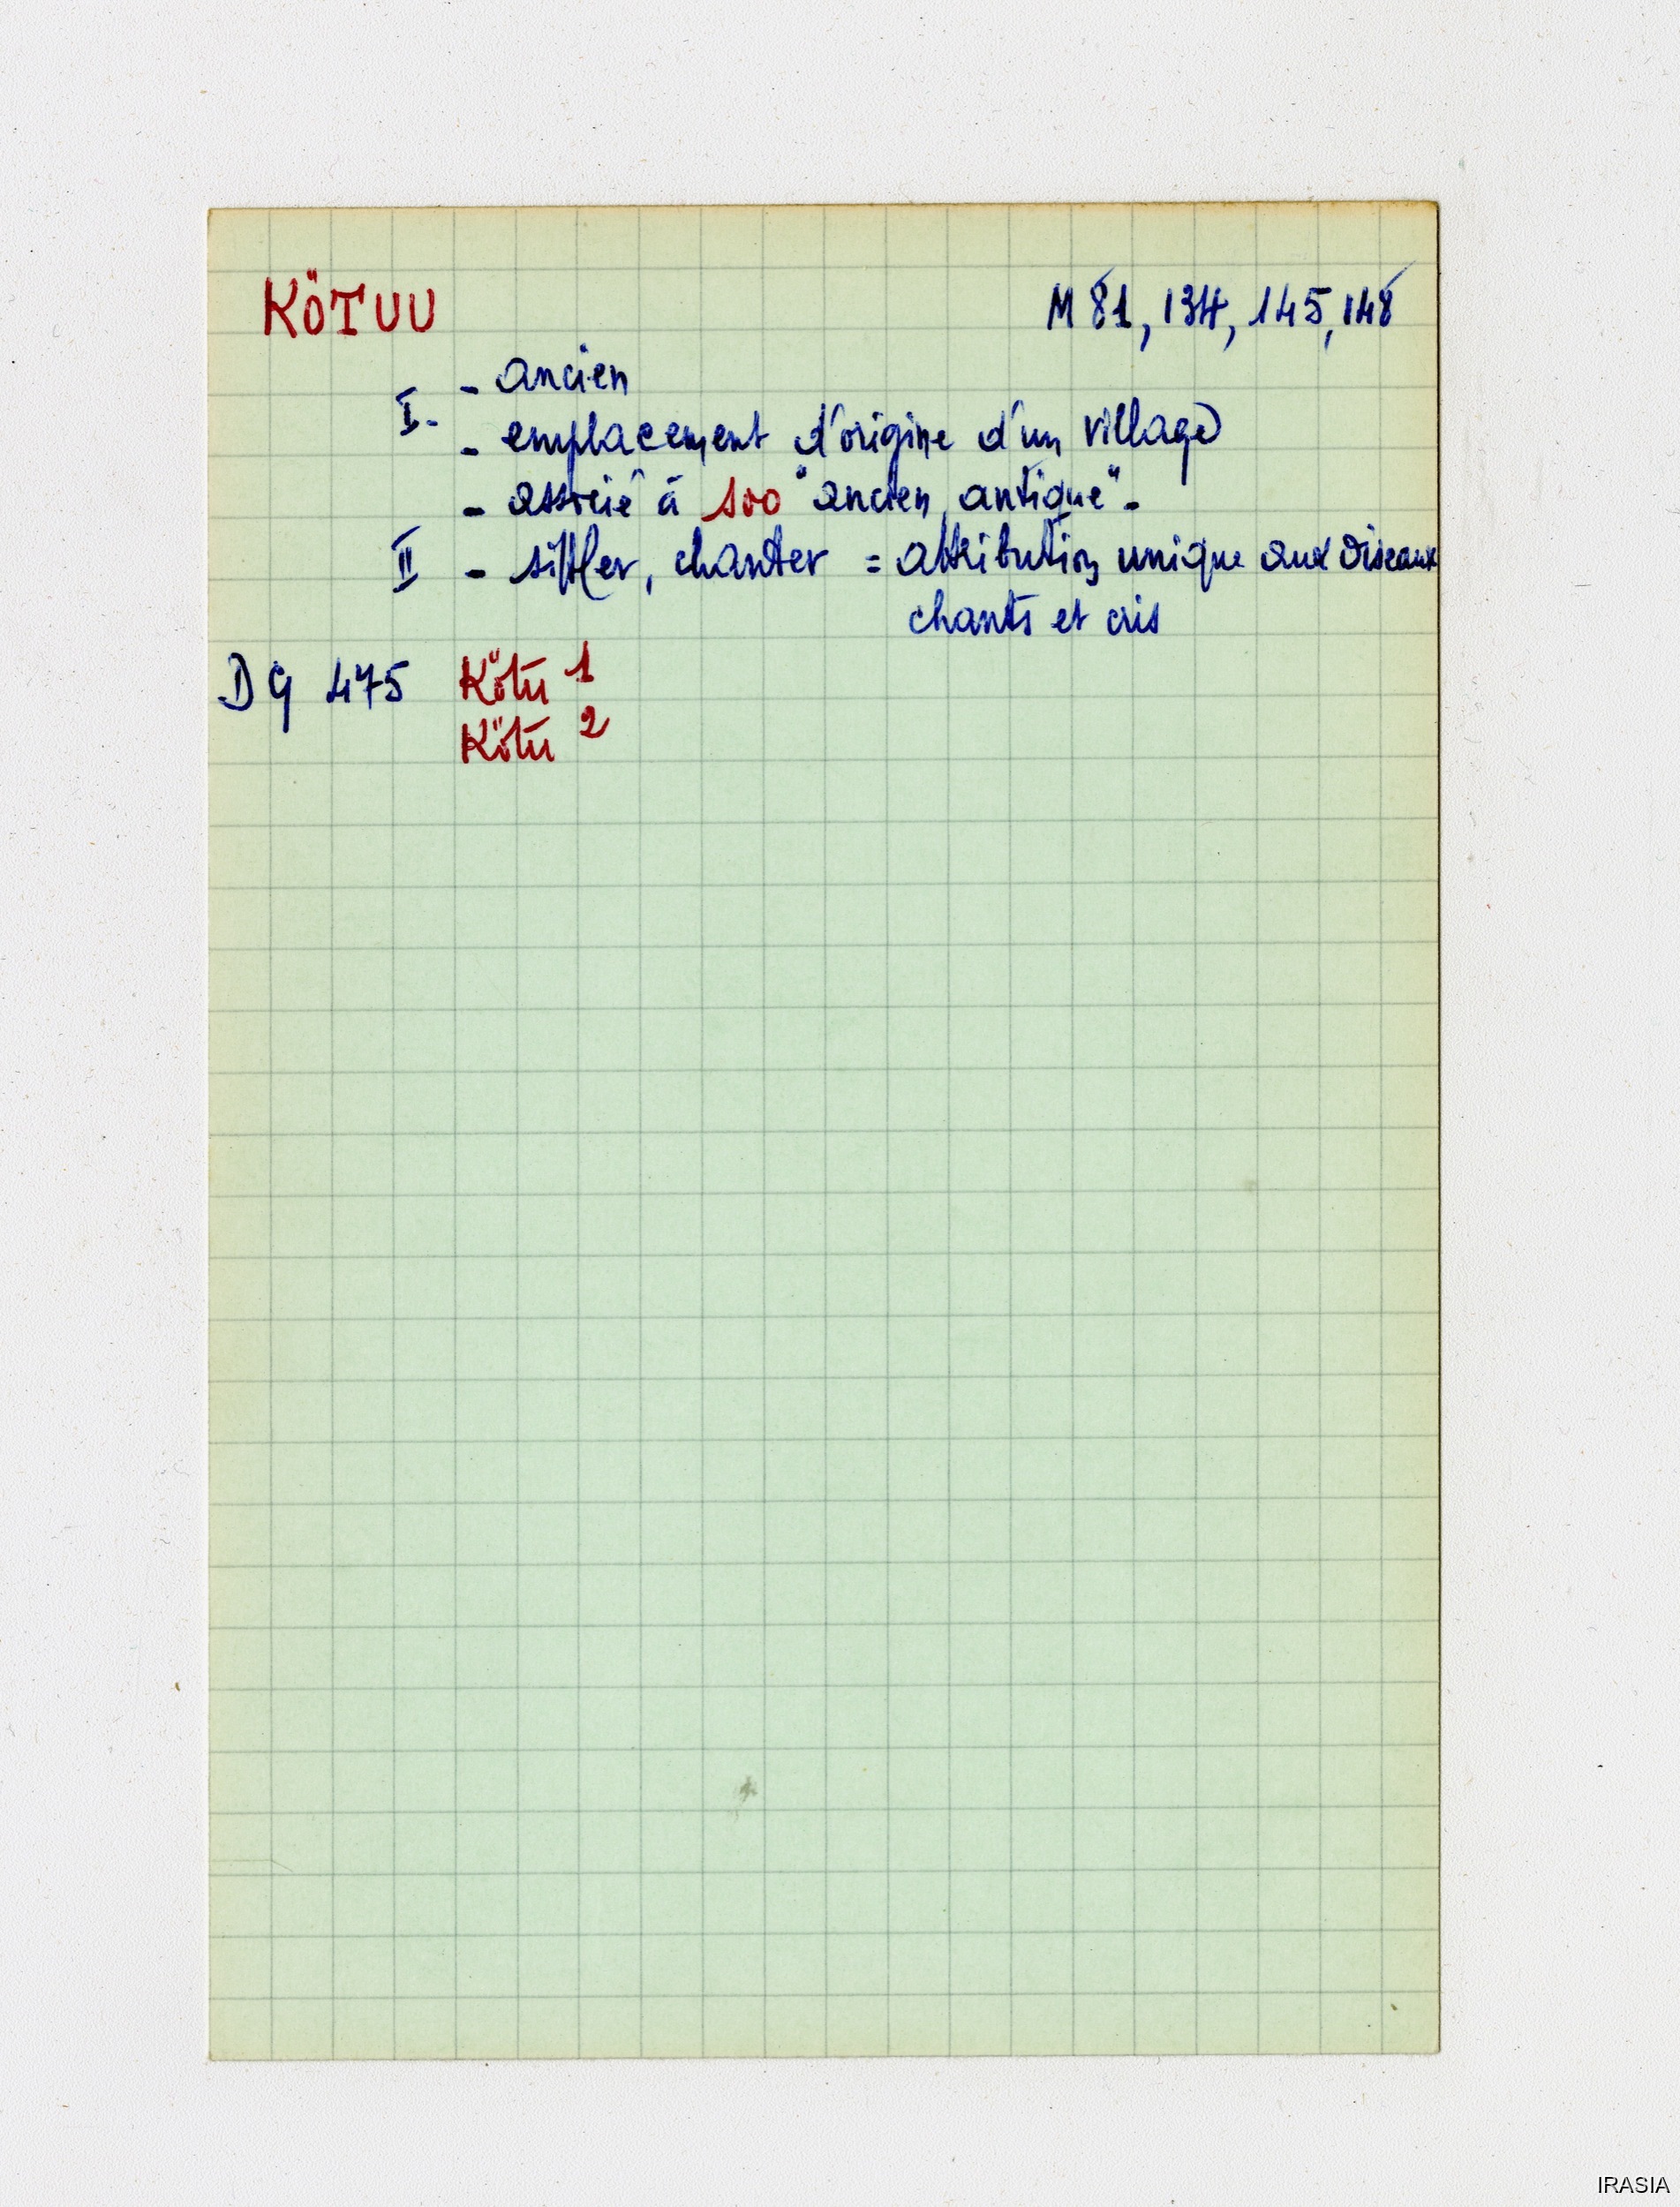 KÖTUU M 81, 134, 145, 148
I- - ancien
- emplacement d'origine d'un village
- associé à soo "ancien, antique".
II - siffler, chanter = attribution unique aux oiseaux
chants et cris
DG 475 Kötu 1
Kötu 2
IRASIA